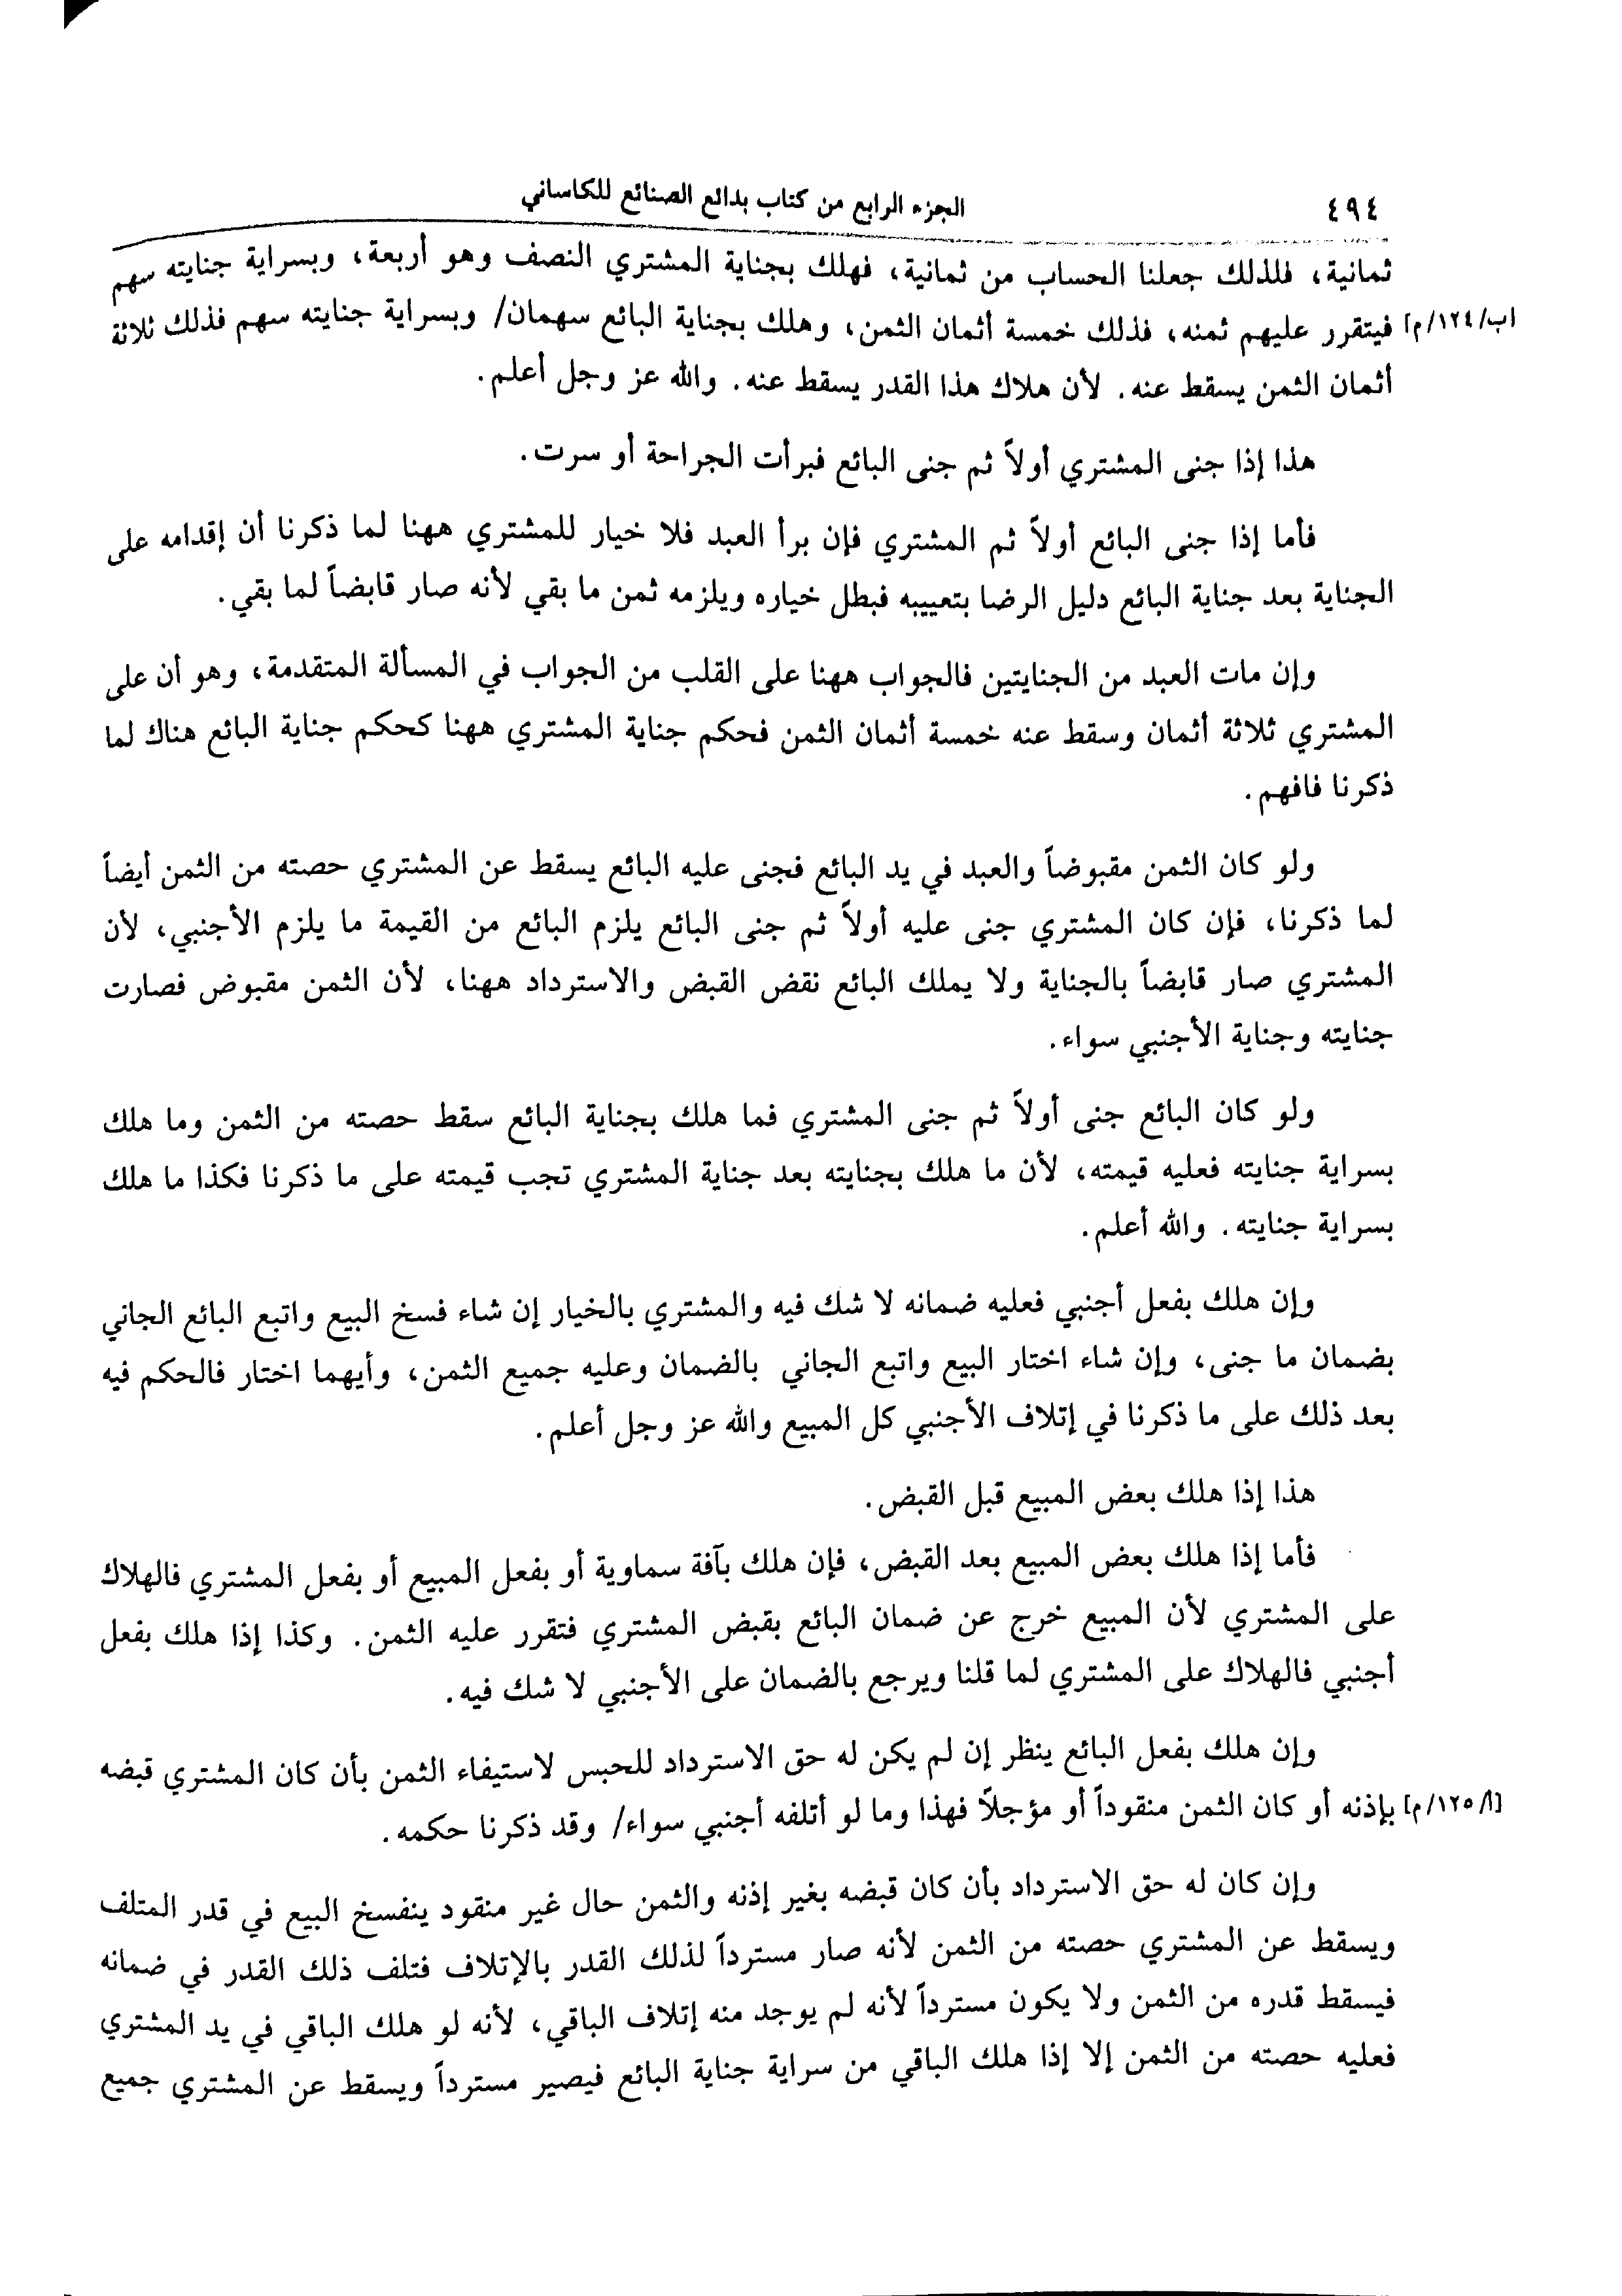 ٤٩٤
الجزء الرابع من كتاب بدائع الصنائع للكاساني
ثمانية، فلذلك جعلنا الحساب من ثمانية، فهلك بجناية المشتري النصف وهو أربعة، وبسراية جنايته سهم
اب/١٢٤/م] فيتقرر عليهم ثمنه، فذلك خمسة أثمان الثمن، وهلك بجناية البائع سهمان/ وبسراية جنايته سهم فذلك ثلاثة
أثمان الثمن يسقط عنه. لأن هلاك هذا القدر يسقط عنه. والله عز وجل أعلم.
هذا إذا جنى المشتري أولاً ثم جنى البائع فبرأت الجراحة أو سرت.
فأما إذا جنى البائع أولاً ثم المشتري فإن برأ العبد فلا خيار للمشتري ههنا لما ذكرنا أن إقدامه على
الجناية بعد جناية البائع دليل الرضا بتعييبه فبطل خياره ويلزمه ثمن ما بقي لأنه صار قابضاً لما بقي.
وإن مات العبد من الجنايتين فالجواب ههنا على القلب من الجواب في المسألة المتقدمة، وهو أن على
المشتري ثلاثة أثمان وسقط عنه خمسة أثمان الثمن فحكم جناية المشتري ههنا كحكم جناية البائع هناك لما
ذكرنا فافهم.
ولو كان الثمن مقبوضاً والعبد في يد البائع فجنى عليه البائع يسقط عن المشتري حصته من الثمن أيضاً
لما ذكرنا، فإن كان المشتري جنى عليه أولاً ثم جنى البائع يلزم البائع من القيمة ما يلزم الأجنبي، لأن
المشتري صار قابضاً بالجناية ولا يملك البائع نقض القبض والاسترداد ههنا، لأن الثمن مقبوض فصارت
جنايته وجناية الأجنبي سواء.
ولو كان البائع جنى أولاً ثم جنى المشتري فما هلك بجناية البائع سقط حصته من الثمن وما هلك
بسراية جنايته فعليه قيمته، لأن ما هلك بجنايته بعد جناية المشتري تجب قيمته على ما ذكرنا فكذا ما هلك
بسراية جنايته. والله أعلم.
وإن هلك بفعل أجنبي فعليه ضمانه لا شك فيه والمشتري بالخيار إن شاء فسخ البيع واتبع البائع الجاني
بضمان ما جنى، وإن شاء اختار البيع واتبع الجاني بالضمان وعليه جميع الثمن، وأيهما اختار فالحكم فيه
بعد ذلك على ما ذكرنا في إتلاف الأجنبي كل المبيع والله عز وجل أعلم.
هذا إذا هلك بعض المبيع قبل القبض.
فأما إذا هلك بعض المبيع بعد القبض، فإن هلك بآفة سماوية أو بفعل المبيع أو بفعل المشتري فالهلاك
على المشتري لأن المبيع خرج عن ضمان البائع بقبض المشتري فتقرر عليه الثمن. وكذا إذا هلك بفعل
أجنبي فالهلاك على المشتري لما قلنا ويرجع بالضمان على الأجنبي لا شك فيه.
وإن هلك بفعل البائع ينظر إن لم يكن له حق الاسترداد للحبس لاستيفاء الثمن بأن كان المشتري قبضه
[أ/١٢٥/م] بإذنه أو كان الثمن منقوداً أو مؤجلاً فهذا وما لو أتلفه أجنبي سواء/ وقد ذكرنا حكمه.
وإن كان له حق الاسترداد بأن كان قبضه بغير إذنه والثمن حال غير منقود ينفسخ البيع في قدر المتلف
ويسقط عن المشتري حصته من الثمن لأنه صار مسترداً لذلك القدر بالإتلاف فتلف ذلك القدر في ضمانه
فيسقط قدره من الثمن ولا يكون مسترداً لأنه لم يوجد منه إتلاف الباقي، لأنه لو هلك الباقي في يد المشتري
فعليه حصته من الثمن إلا إذا هلك الباقي من سراية جناية البائع فيصير مسترداً ويسقط عن المشتري جميع